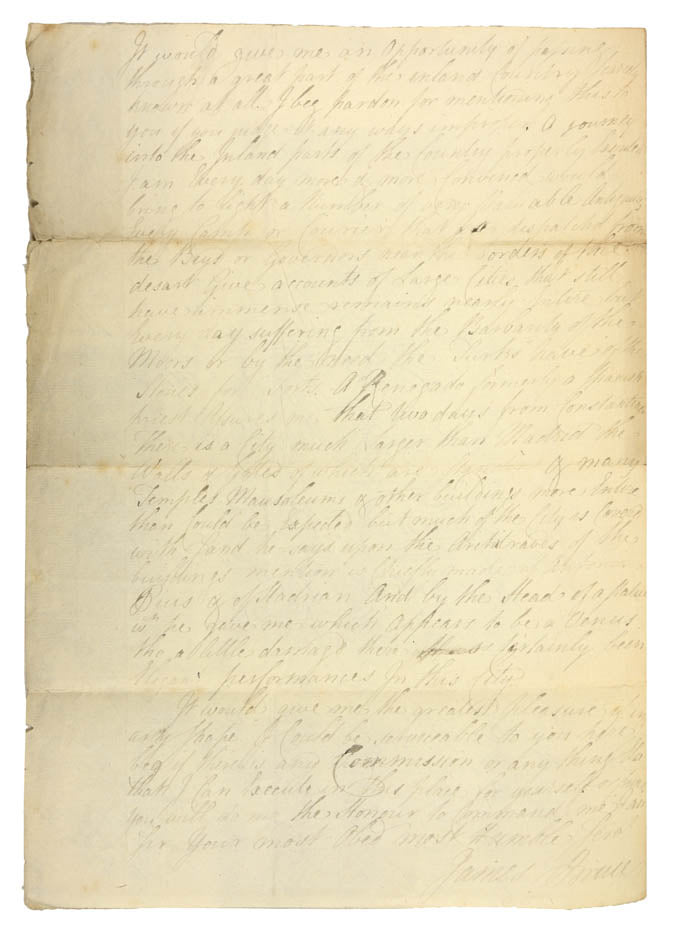 It would give me an opportunity of passing
through a great part of the inland Country
known at all. I beg pardon for mentioning this to
you if you judge it any ways improper. A journey
into the Inland parts of the Country properly
I am Every day more & more convinced would
bring to light a Number of very valuable
Every Camp or Courier that is dispatched from
the Beys or Governors near the Borders of the
desart Give accounts of Large Cities that still
have immense remains nearly Entire but
Every day suffering from the Barbarity of the
Moors or by the the Turks make of the
Stones for forts. A Renegado formerly a Spanish
priest assures me that two days from Constantina
There is a City much Larger than Madrid the
Walls & Gates of which are & many
Temples Mausoleums & other buildings more Entire
than Could be Expected but much of the City is Cover'd
with Sand he says upon the Architraves of the
buildings mention is Chiefly made of
Pius & of Hadrian And by the Head of a Statue
wch he gave me which appears to be a Venus
tho a little damaged there has Certainly been
performances In this City
It would give me the greatest pleasure if in
any shape I Could be serviceable to you
beg if there is any Commission or any thing
that I Can Execute in this place for yourself or
you will do me the Honour to Command me I am
Sr Your most Obed most Humble
James Bruce